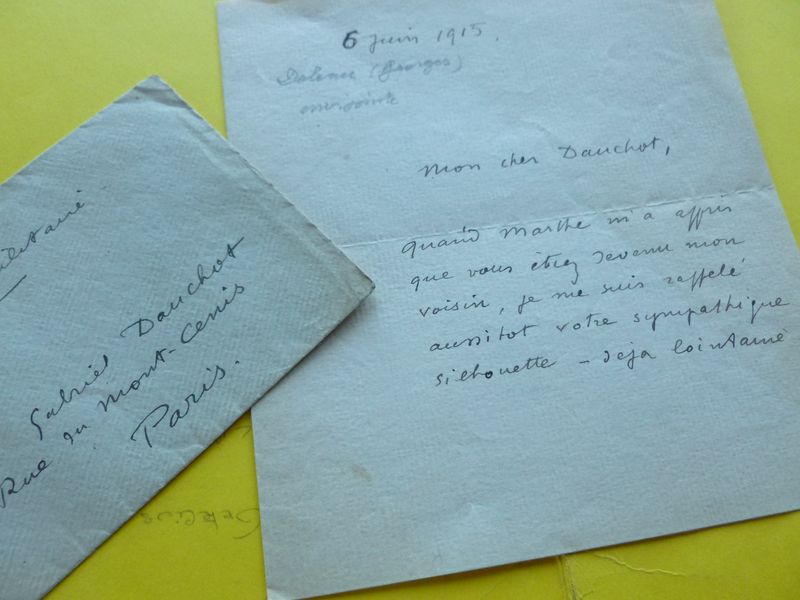 6 Juin 1915.
(Georges)
Mon cher Dauchot,
Quand Marthe m'a appris
que vous étiez devenu mon
voisin, je me suis rappelé
aussitot votre sympathique
silhouette – déja lointaine
Gabriel Dauchot
Rue du Mont-Cenis
Paris.